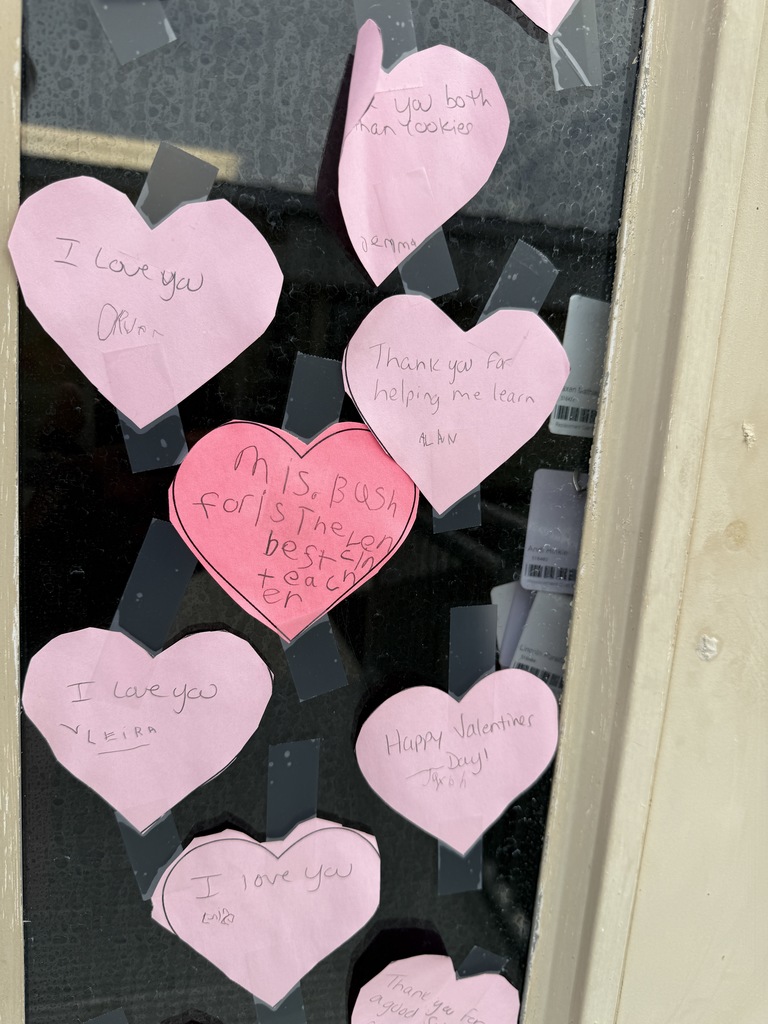 you both
than cookies
Jemma
I Love you
Thank you for
helping me learn
ALAN
Mis. Bush
for is The
best
teach
er
I Love you
VLEIRA
Happy Valentines
Day!
I love you
Thank you for
a good